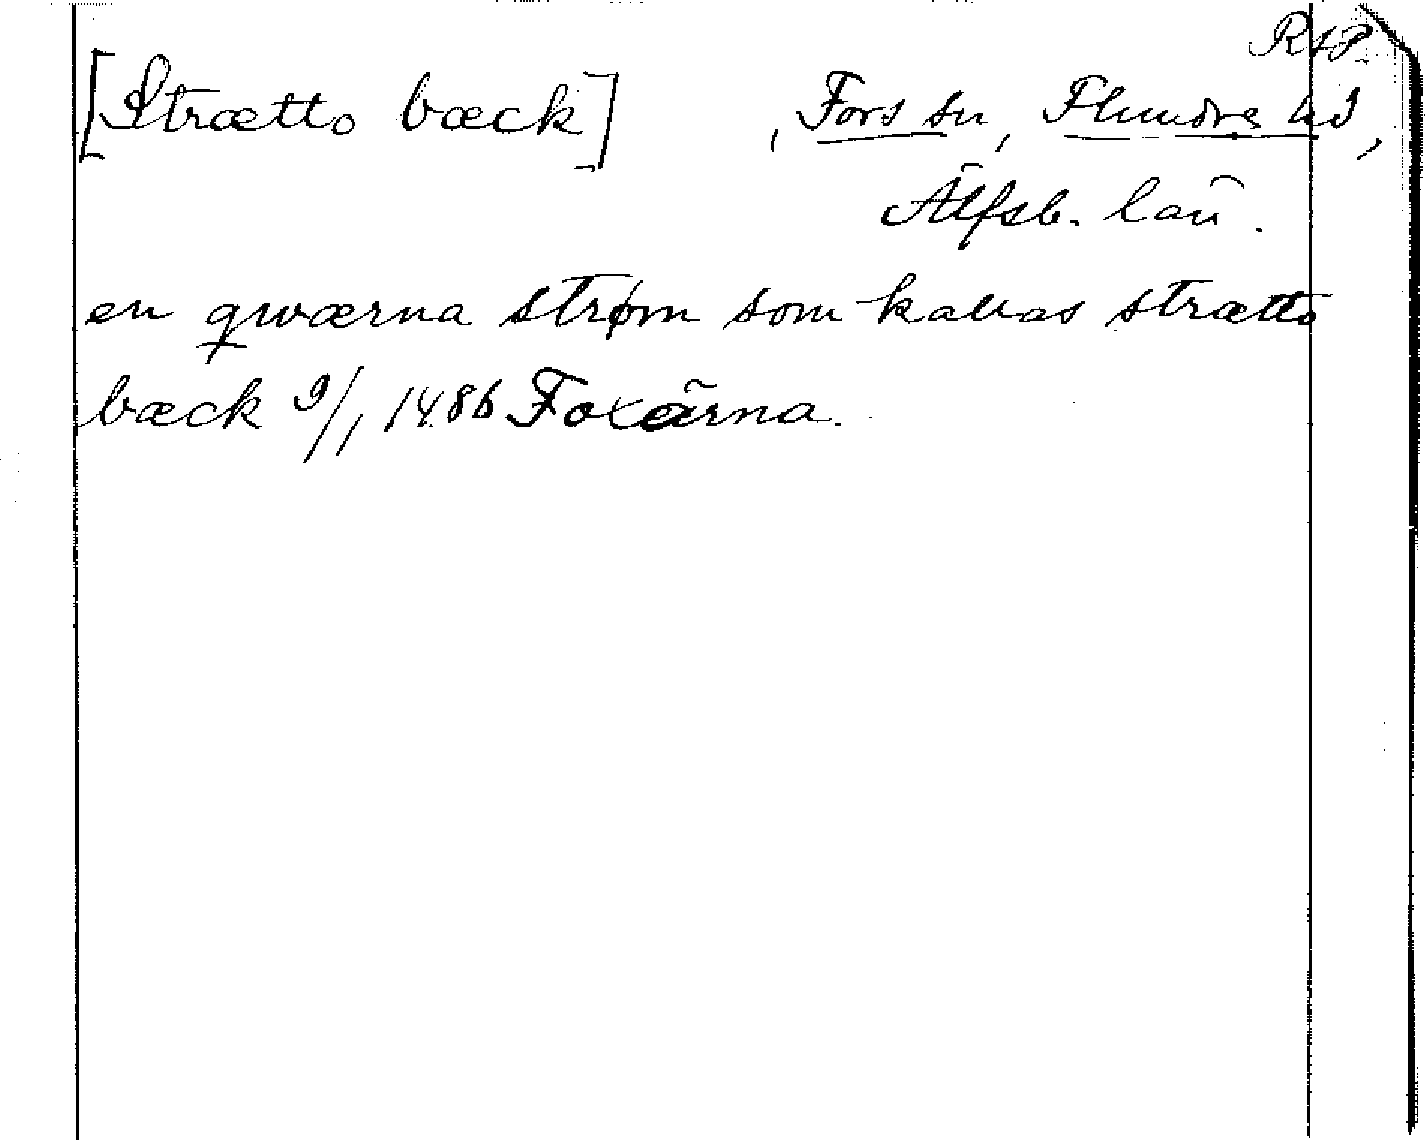 RAP.
[Strætto bæck] , Fors sn, Flundre hd,
Älfsb. län.
en qwærna strøm som kallas strætto
bæck 9/1 1486 Foxärna.